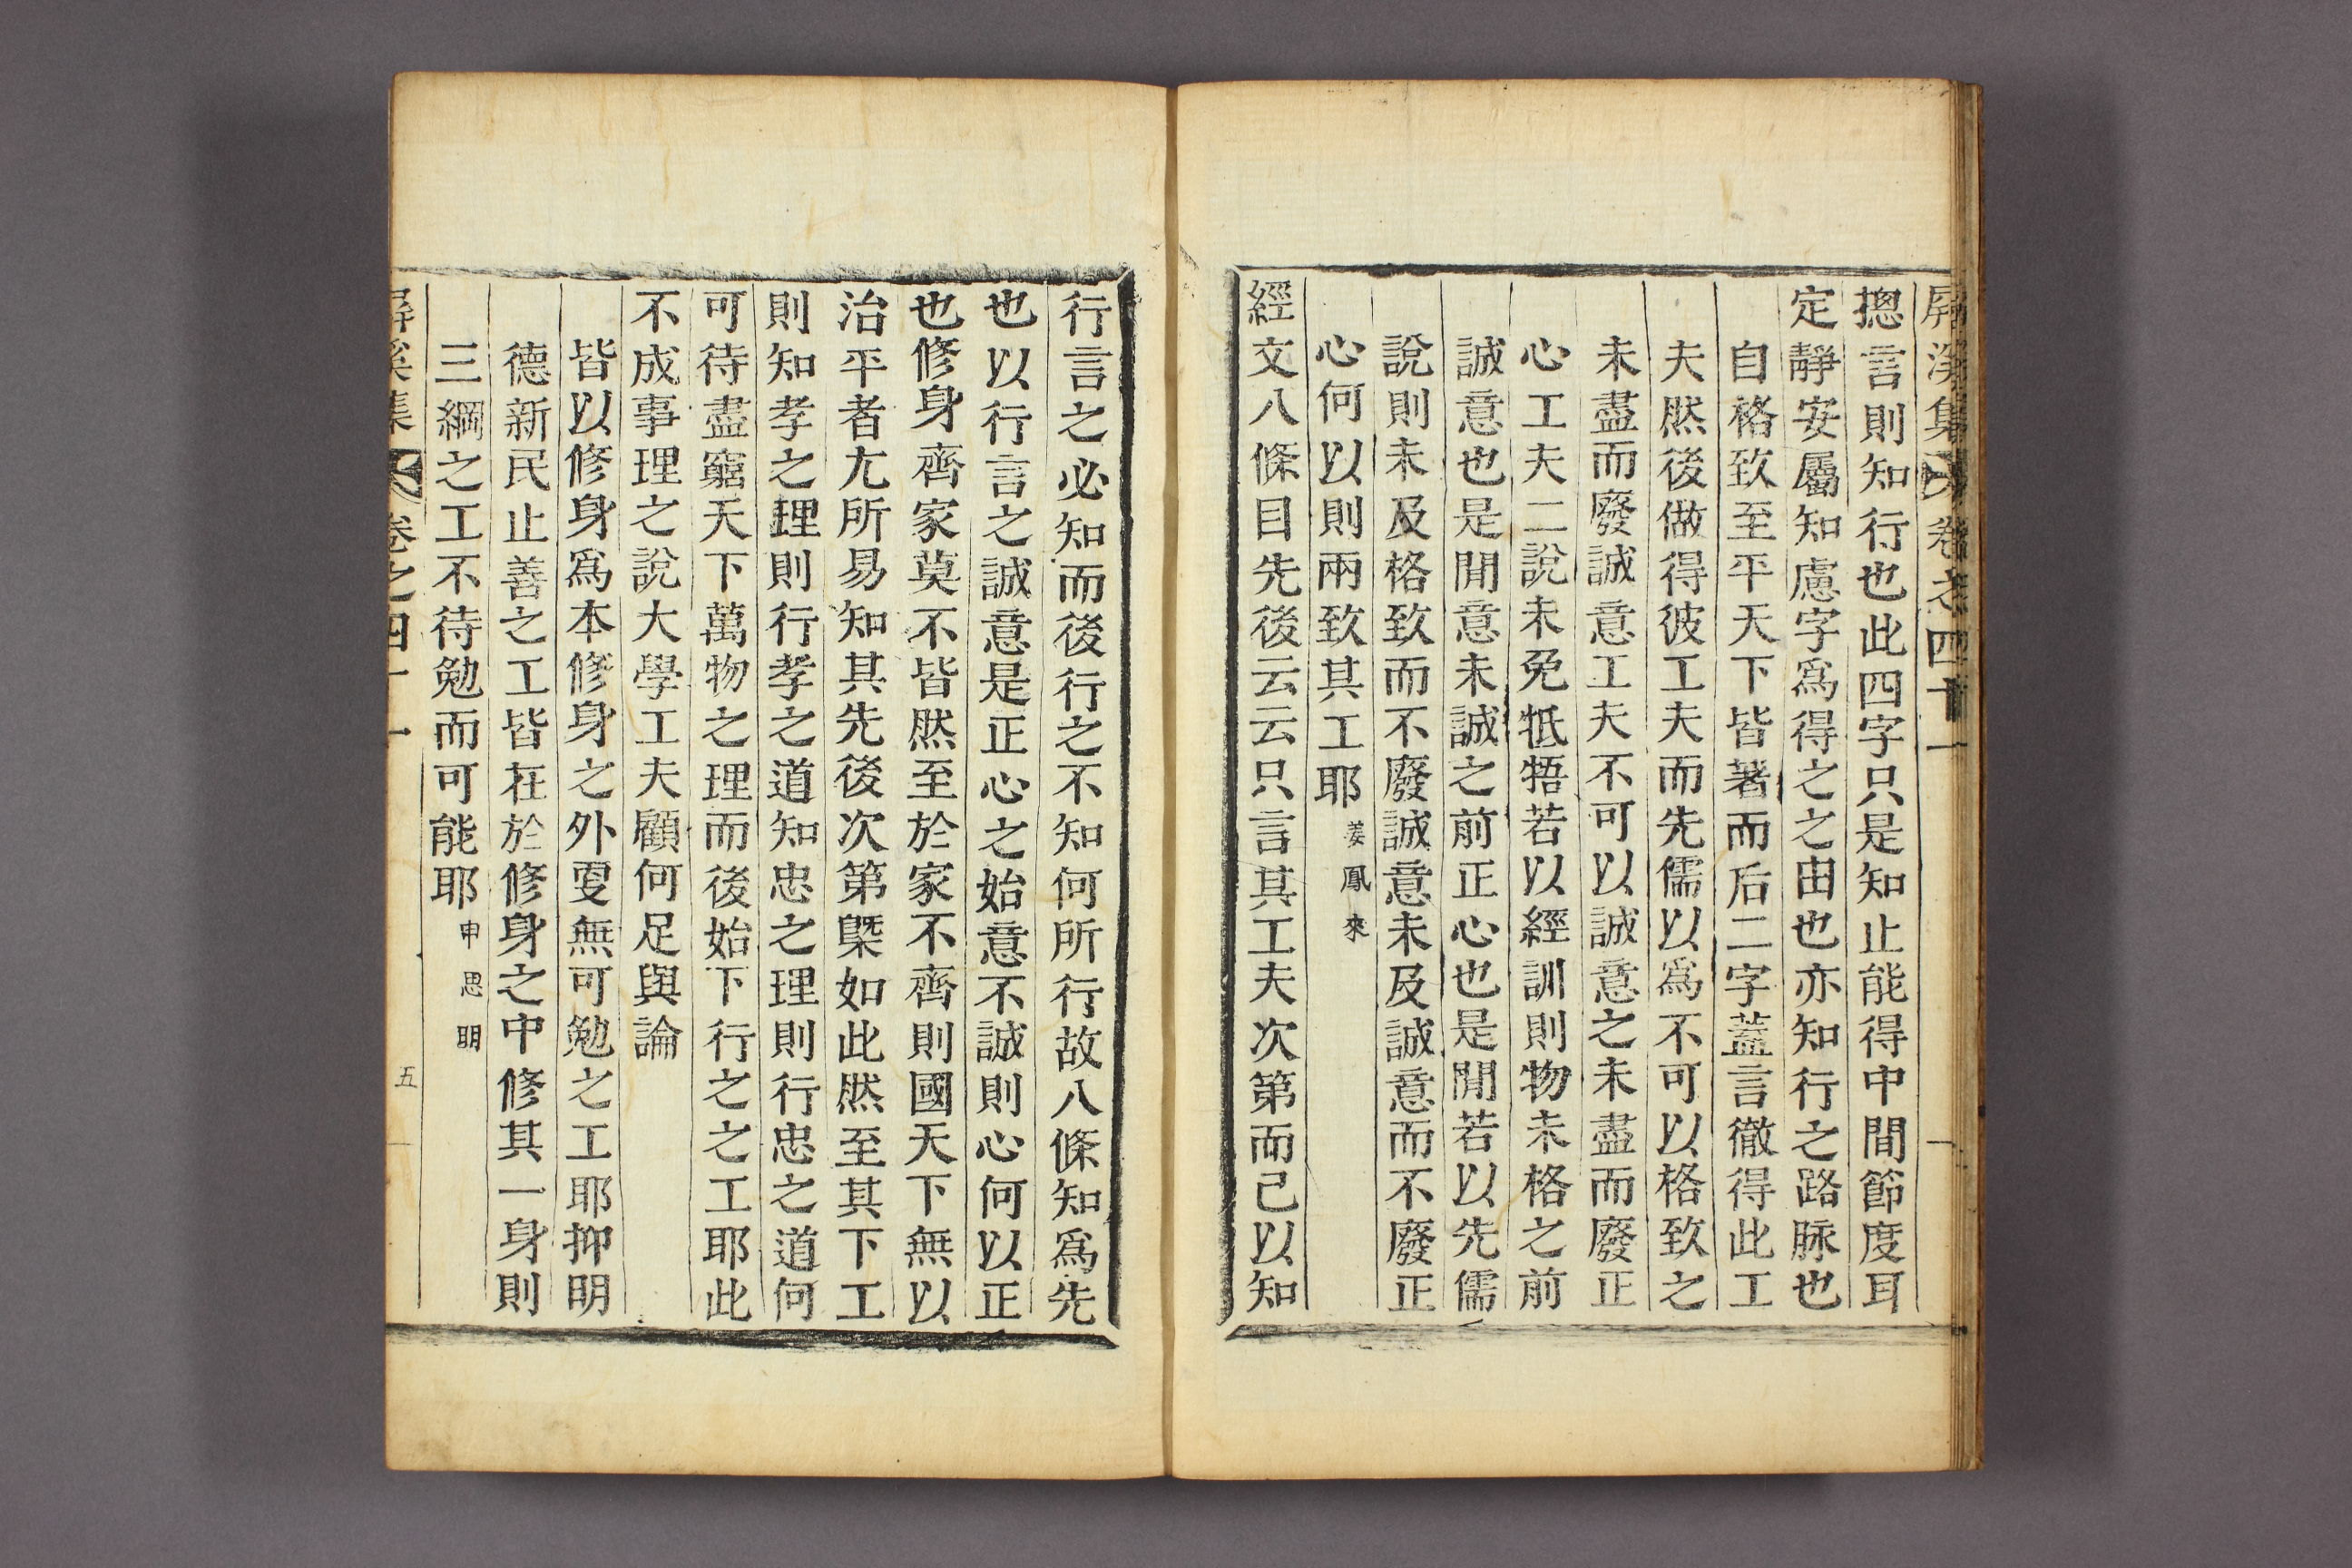 屛溪集 卷之四十一
摠言則知行也此四字只是知止能得中間節度耳
定靜安屬知慮字爲得之之由也亦知行之路脉也
自格致至平天下皆著而后二字蓋言徹得此工
夫然後做得彼工夫而先儒以爲不可以格致之
未盡而廢誠意工夫不可以誠意之未盡而廢正
心工夫二說未免牴牾若以經訓則物未格之前
誠意也是閒意未誠之前正心也是閒若以先儒
說則未及格致而不廢誠意未及誠意而不廢正
心何以則兩致其工耶 姜鳳來
經文八條目先後云云只言其工夫次第而已以知
行言之必知而後行之不知何所行故八條知爲先
也以行言之誠意是正心之始意不誠則心何以正
也修身齊家莫不皆然至於家不齊則國天下無以
治平者尤所易知其先後次第槩如此然至其下工
則知孝之理則行孝之道知忠之理則行忠之道何
可待盡窮天下萬物之理而後始下行之之工耶此
不成事理之說大學工夫顧何足與論
皆以修身爲本修身之外更無可勉之工耶抑明
德新民止善之工皆在於修身之中修其一身則
三綱之工不待勉而可能耶 申思明
屛溪集 卷之四十一 五